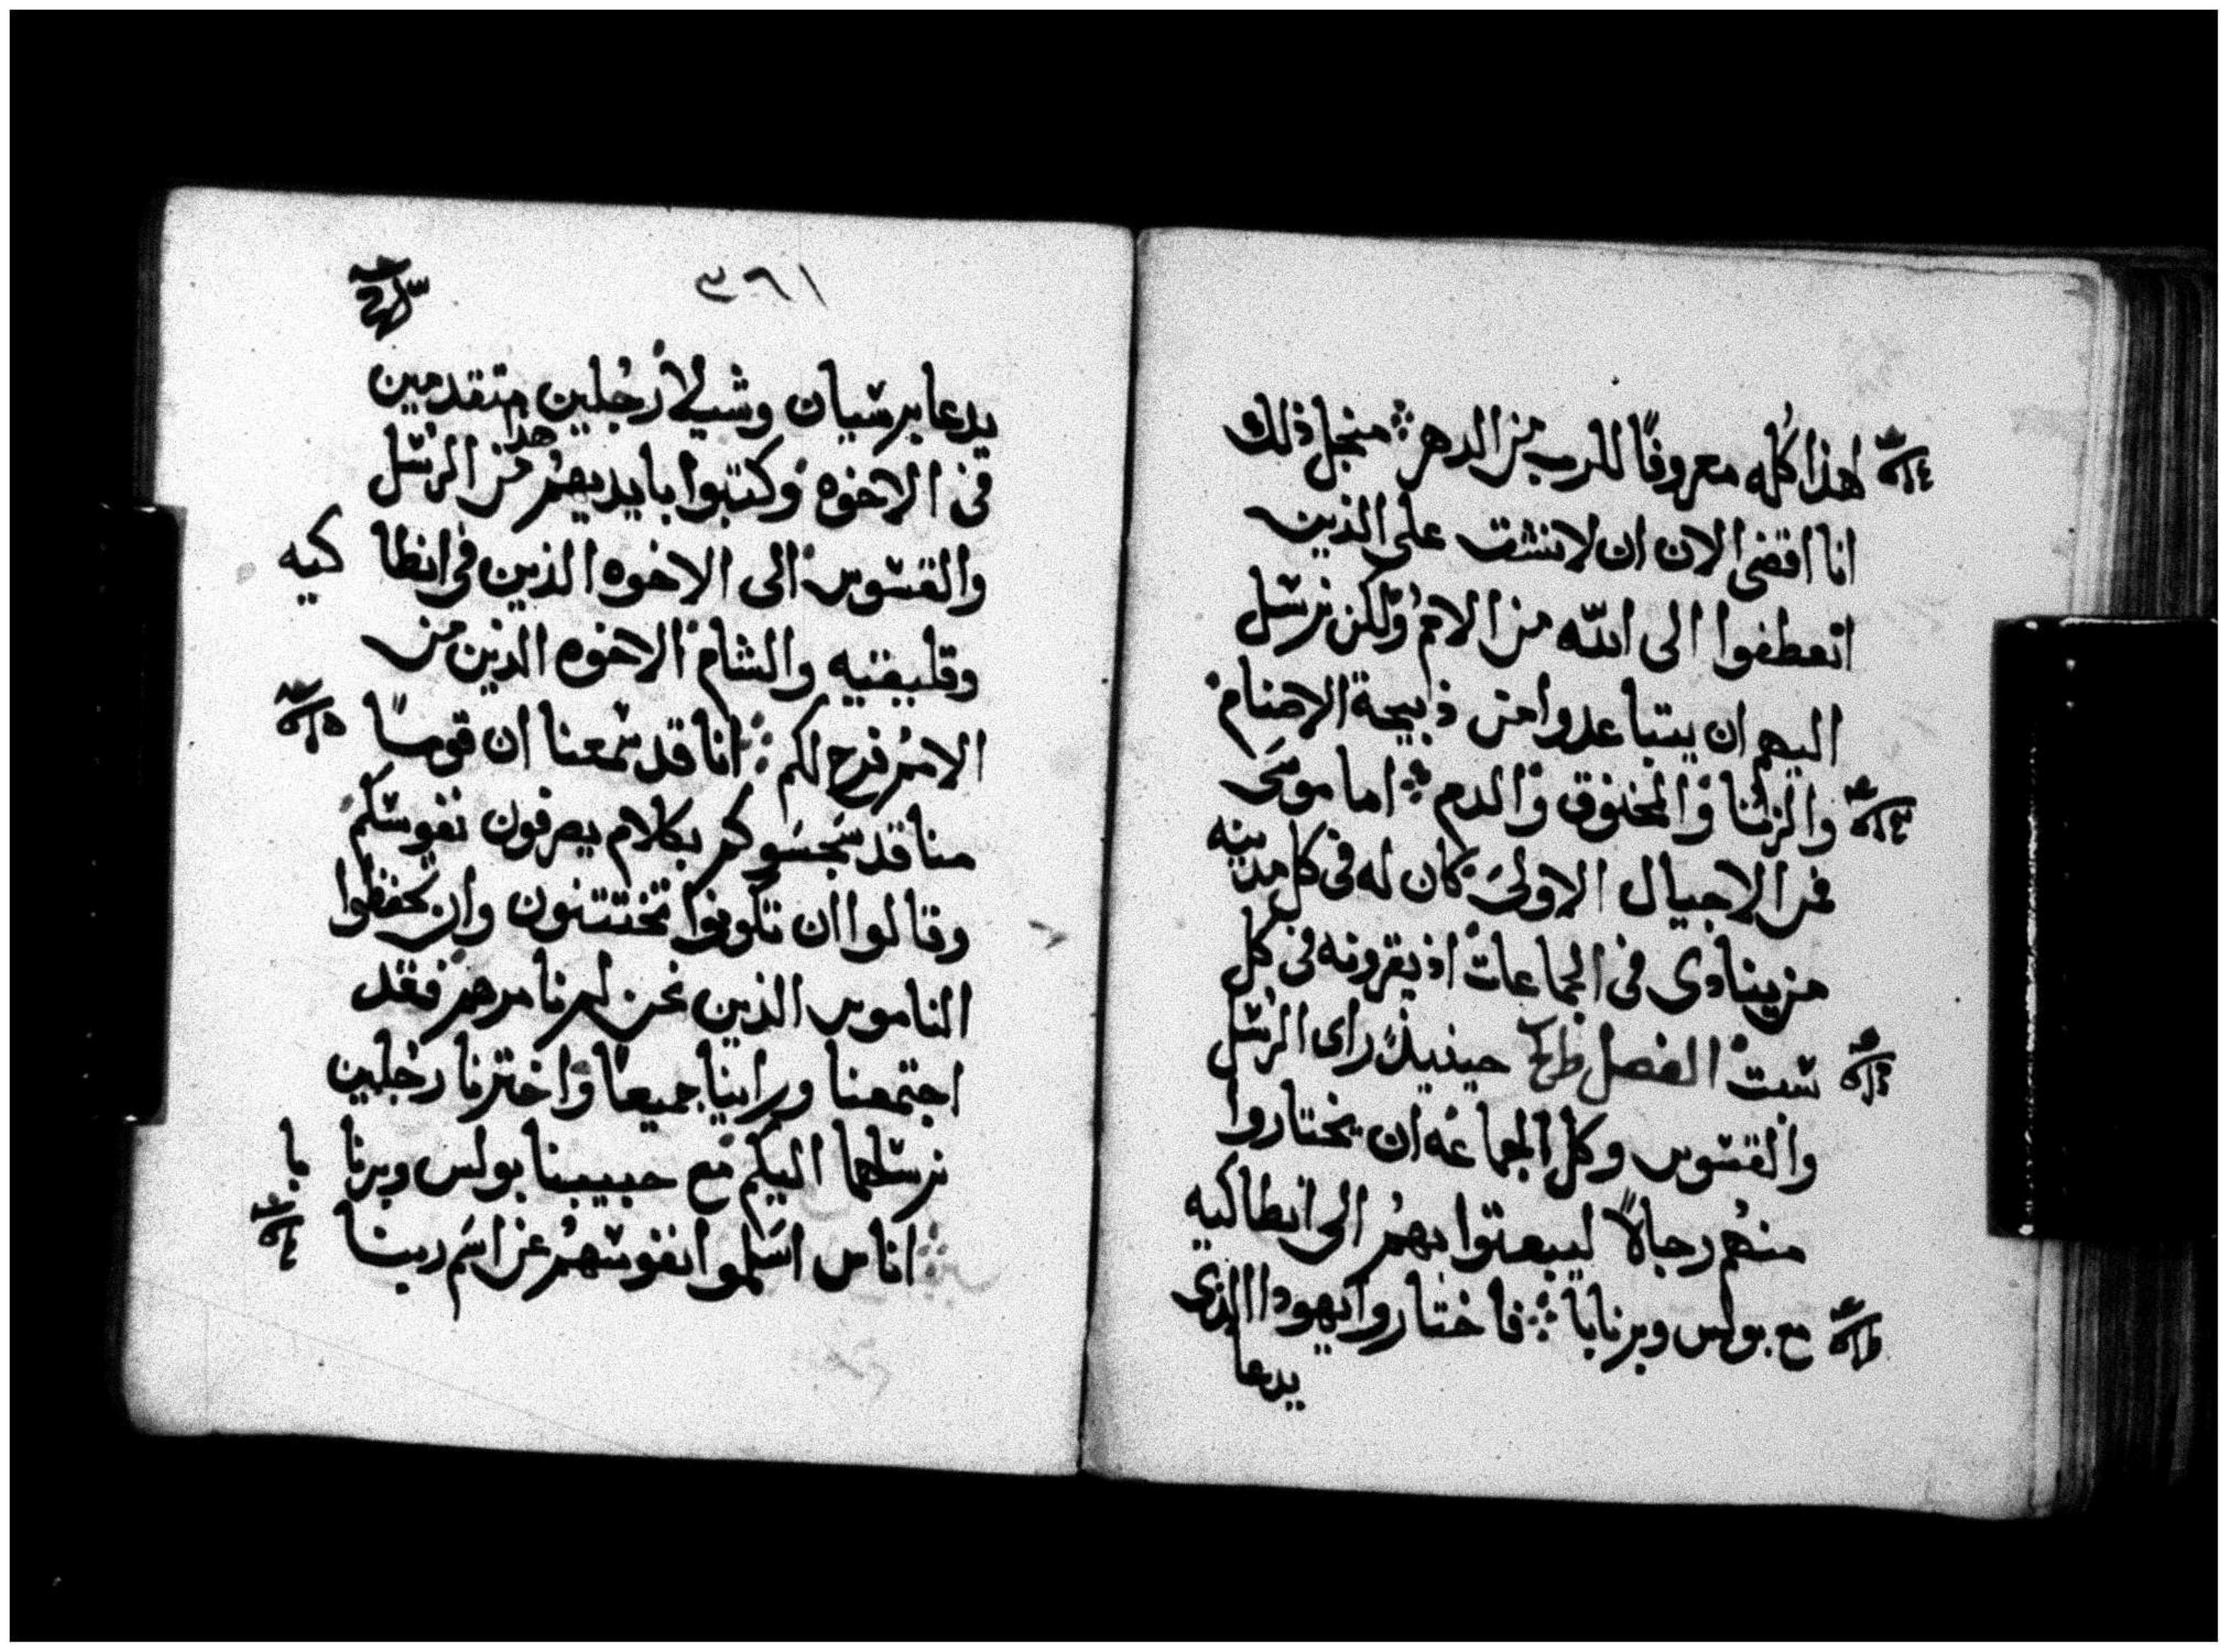 هذا كُله معروفًا للرب من الدهر ۞ منجل ذلك
انا اقضي الان ان لا نشق على الذين
انعطفوا الى الله من الامم ولكن نرسل
اليهم ان يتباعدوا من ذبيحة الاصنام
والزنا والمخنوق والدم ۞ اما موسى
فمن الاجيال الاولى كان له في كل مدينه
من ينادى في الجماعات اذ يقرونه في كل
سبت الفصل حينيذ راى الرسل
والقسوس وكل الجماعه ان يختاروا
منهم رجالاً ليبعثوا بهم الى انطاكيه
مع بولس وبرنابا ۞ فاختاروا يهودا الذى
يدعا
٣٦١
يدعا برسبان وشيلا رجلين متقدمين
فى الاخوه وكتبوا بايديهم هذا من الرسل
والقسوس الى الاخوه الذين فى انطاكيه
وقليقيه والشام الاخوه الذين من
الامم فرح لكم ۞ انا قد سمعنا ان قومًا
منا قد سجسوكم بكلام يصرفون نفوسكم
وقالوا ان تكونوا تختتنون وان تحفظوا
الناموس الذين نحن لم نامرهم فقد
اجتمعنا وراينا جميعًا واخترنا رجلين
نرسلهما اليكم مع حبيبنا بولس وبرنابا
۞ اناس اسلموا انفوسهم عن اسم ربنا